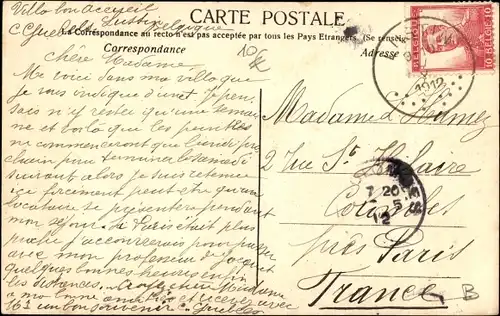 Villa bon Accueil
Lustin
Belgique
CARTE POSTALE
La Correspondance au recto n'est pas acceptée par tous les Pays Etrangers. (Se renseig
Correspondance
Adresse
10 BELGIE 10
1912
Chère Madame,
Me voici dans ma villa que
je vous indique d'avet Je pen
sais n'y rester qu'une semai
ne et voilà que les peintres
ne commenceront que lundi pro
chain pour terminer le samedi
suivant alors je suis retenue
ici forcément peut être qu'un
locataire se présentera pendant
mon séjour. Si Paris était plus
près j'accourerais pour passer
avec mon professeur de
quelques bonnes heures enfin
les distances. Madame
a ma bonne et recevez avec
un bon souvenir
Madame d
2 Rue St Hilaire
Colombes
près Paris
France
7 20
5
12
B